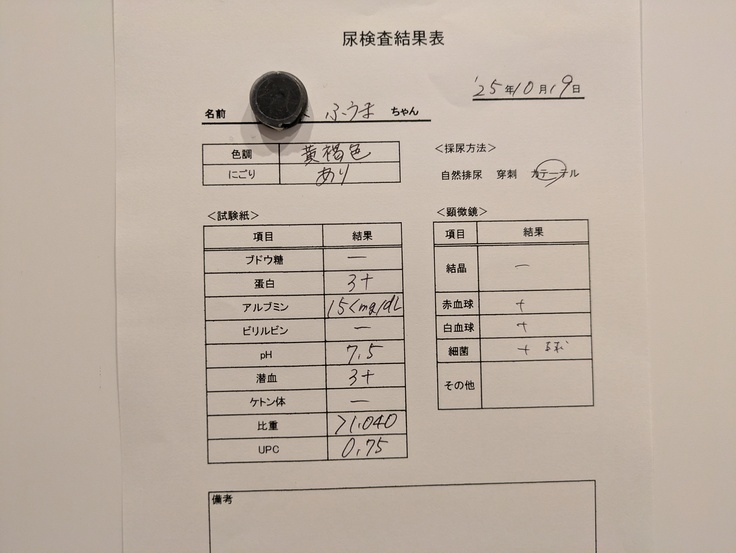 尿検査結果表
'25年10月19日
名前 ふうま ちゃん
色調 黄褐色
にごり あり
＜採尿方法＞
自然排尿 穿刺 カテーテル
＜試験紙＞
項目 結果
ブドウ糖 －
蛋白 3+
アルブミン 15<mg/dL
ビリルビン －
pH 7.5
潜血 3+
ケトン体 －
比重 >1.040
UPC 0.75
＜顕微鏡＞
項目 結果
結晶 －
赤血球 +
白血球 +
細菌 +
その他
備考